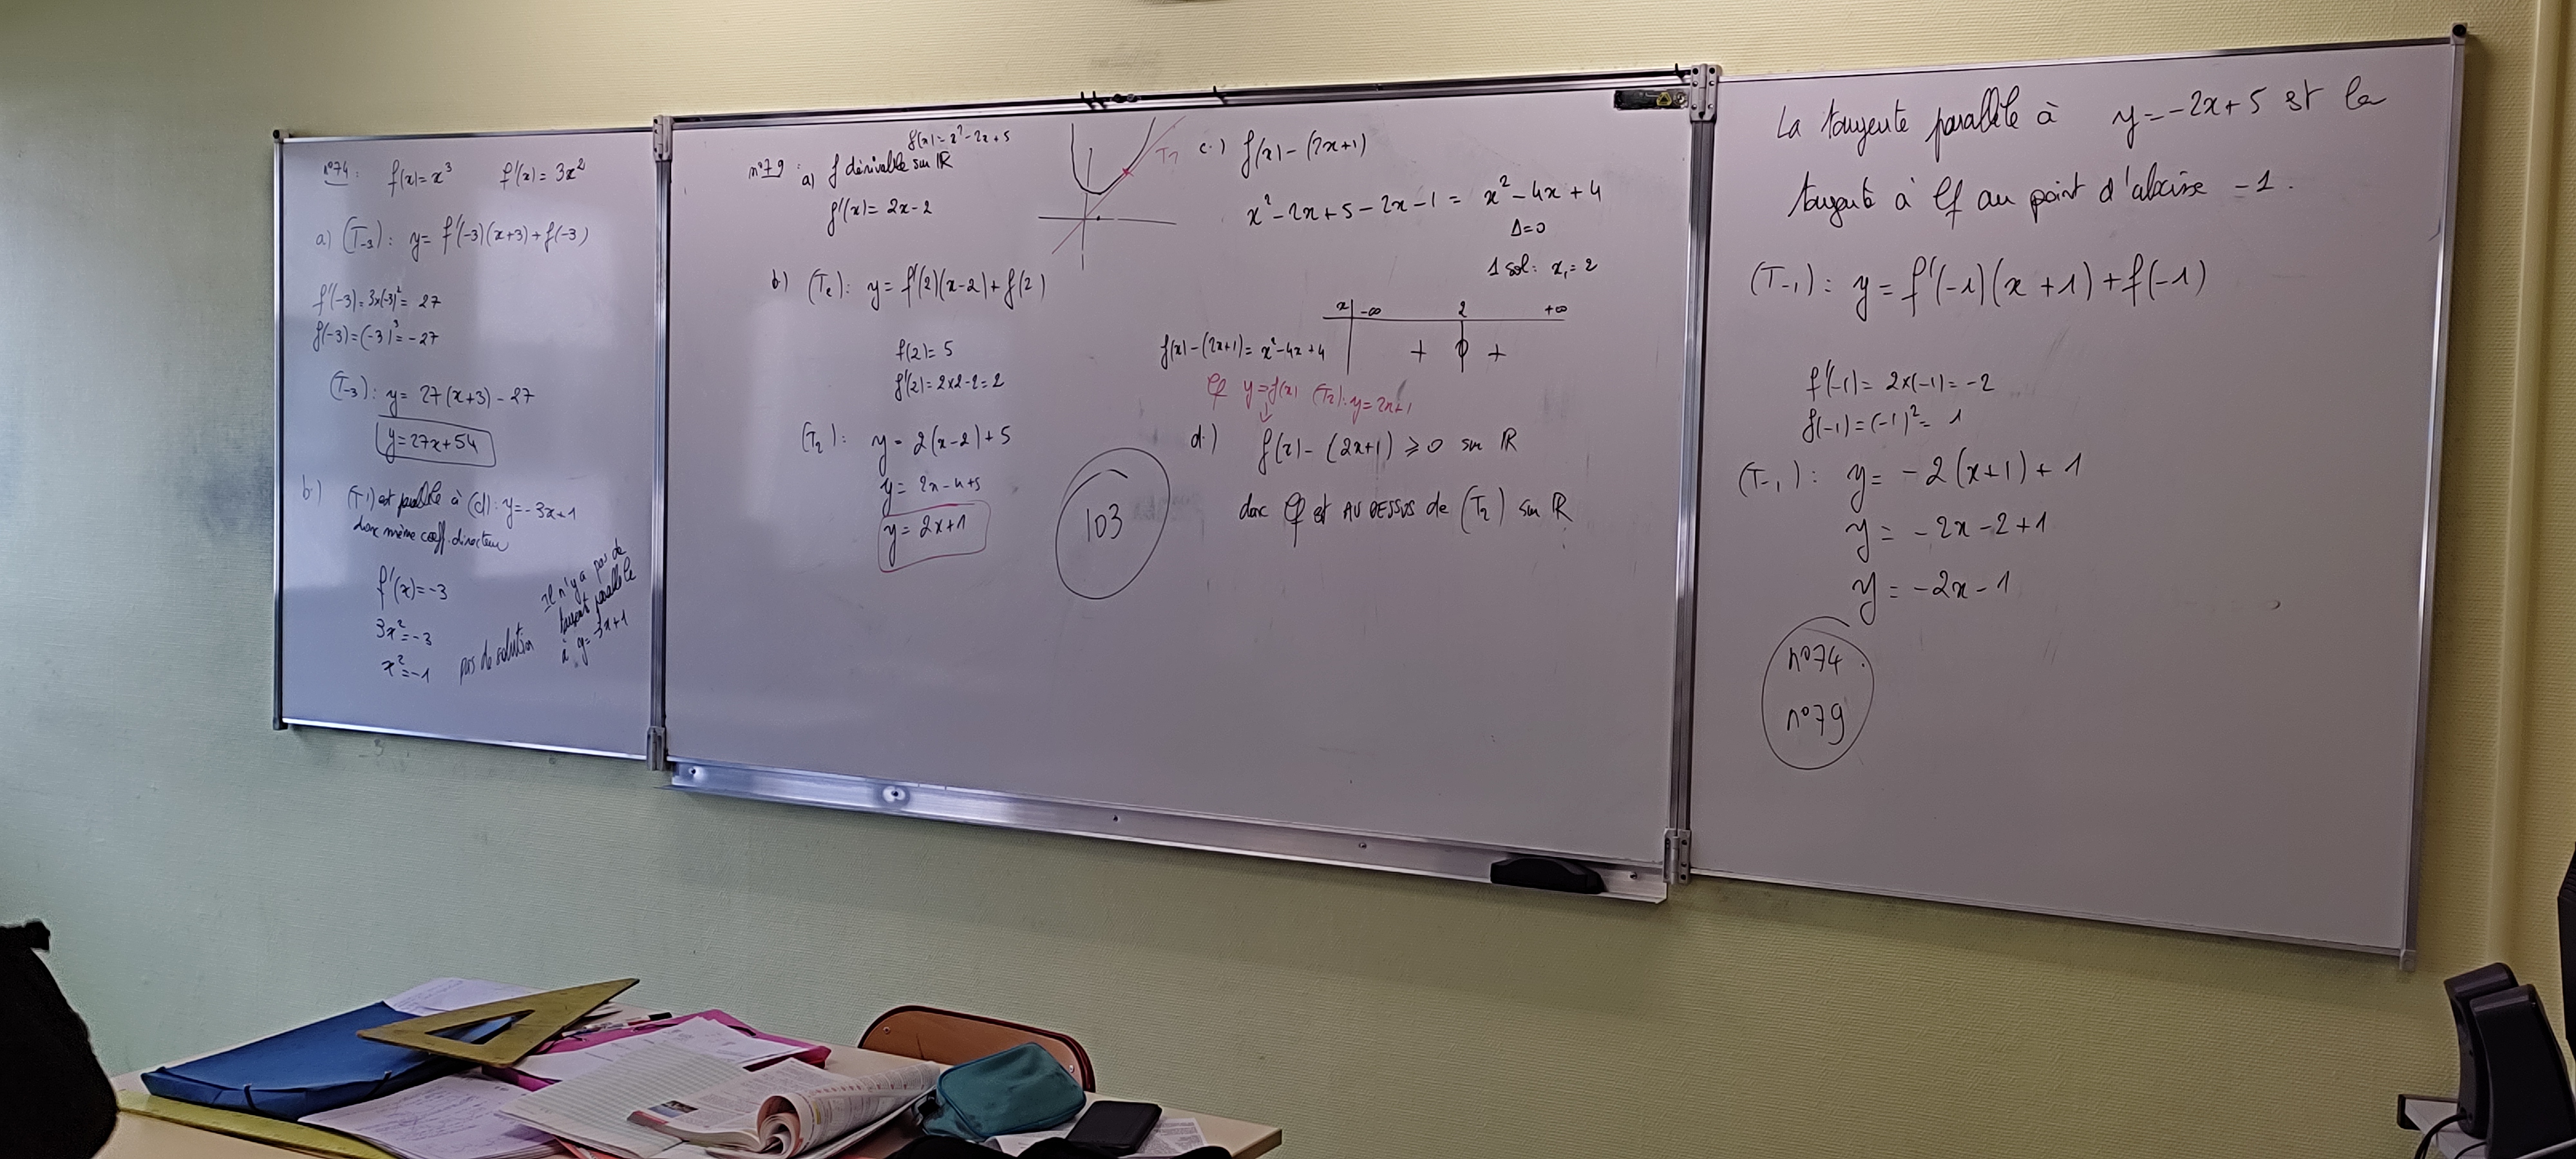 n°74 : f(x) = x³ f'(x) = 3x²
a) (T₋₃) : y = f'(-3)(x+3) + f(-3)
f'(-3) = 3x(-3)² = 27
f(-3) = (-3)³ = -27
(T₋₃) : y = 27(x+3) - 27
y = 27x + 54
b) (T) est parallèle à (d) : y = -3x+1
donc même coeff. directeur
f'(x) = -3
3x² = -3
x² = -1 pas de solution
Il n'y a pas de
tangente parallèle
à y = -3x+1
f(x) = x² - 2x + 5
n°79 : a) f dérivable sur ℝ
f'(x) = 2x - 2
b) (T₂) : y = f'(2)(x-2) + f(2)
f(2) = 5
f'(2) = 2x2-2 = 2
(T₂) : y = 2(x-2) + 5
y = 2x - 4 + 5
y = 2x + 1
103
T₂
c.) f(x) - (2x+1)
x² - 2x + 5 - 2x - 1 = x² - 4x + 4
Δ = 0
1 sol : x₁ = 2
x -∞ 2 +∞
f(x) - (2x+1) = x² - 4x + 4 + 0 +
Cf y = f(x) (T₂) : y = 2x+1
d.) f(x) - (2x+1) ≥ 0 sur ℝ
donc Cf est AU DESSUS de (T₂) sur ℝ
La tangente parallèle à y = -2x + 5 est la
tangente à Cf au point d'abscisse -1.
(T₋₁) : y = f'(-1)(x+1) + f(-1)
f'(-1) = 2x(-1) = -2
f(-1) = (-1)² = 1
(T₋₁) : y = -2(x+1) + 1
y = -2x - 2 + 1
y = -2x - 1
n°74
n°79